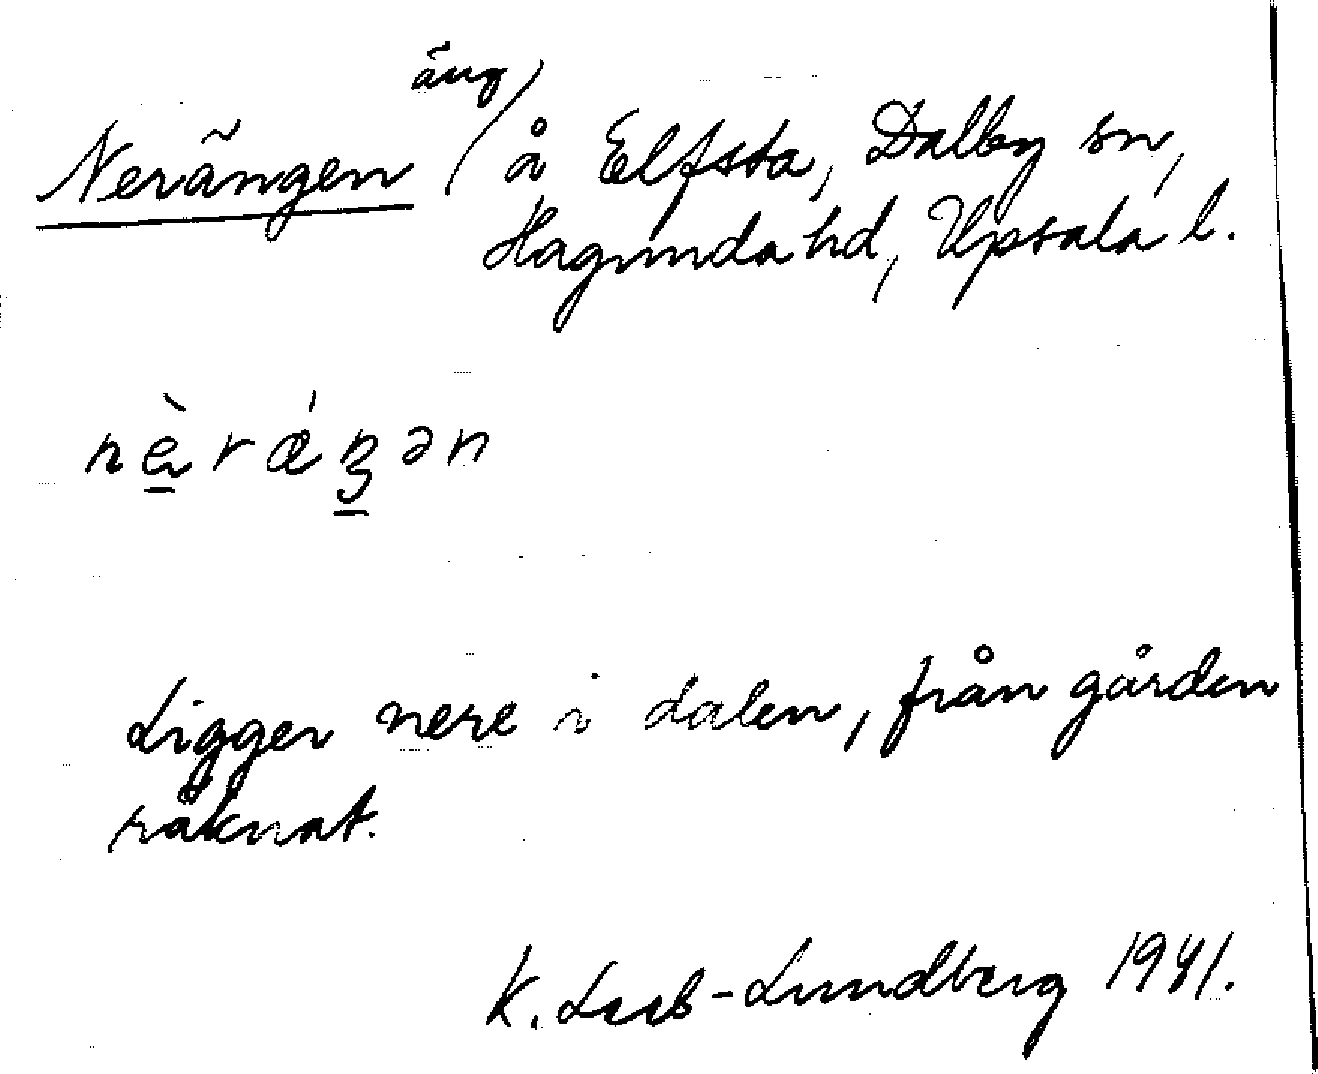 Nerängen (äng) å Elfsta, Dalby sn,
Hagunda hd, Upsala l.
nè̠rǽŋ̠ən
Ligger nere i dalen, från gården
räknat.
K. Leeb-Lundberg 1941.